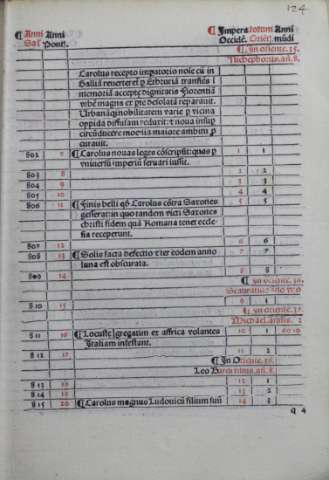 124
¶ Anni Anni
Sal. Pont.
¶ Impera totum Anni
Occidē. Oriēt. mūdi
¶ In oriente. 15.
Nicephorus. añ. 8.
Carolus recepto imperatorio noīe cū in
Galliā reuerteret per Etruriā transiēs i
memoriā accepte dignitatis Florentiā
vrbē magna ex pte desolatā reparauit.
Urbanāq; nobilitatem varie p vicina
oppida diffusam reduxit: noua insup
circūducere moenia maiore ambitu p
curauit.
802 7 ¶ Carolus nouas leges cōscripsit: quas p 1 1
vniuersū imperiū seruari iussit.
803 8 2 2
804 9 3 3
805 10 4 4
806 11 ¶ Finis belli qd Carolus cōtra Saxones 5 5
gesserat: in quo tandem victi Saxones
christi fidem quā Romana tenet eccle-
sia receperunt.
807 12 6 6
808 13 ¶ Solis facta defectio: et eodem anno 7 7
luna est obscurata.
809 14 8 8
¶ In oriente. 16.
Stauratius año vno
810 15 9 1
¶ In oriente. 17.
Michael. annis. 2
811 16 ¶ Locuste gregatim ex affrica volantes 10 1 6010
Italiam infestant.
812 17 11 2
¶ In Oriente. 18.
Leo annis. 8.
813 18 12 1
814 19 13 2
815 20 ¶ Carolus magnus Ludouicū filium suū 14 3
q 4